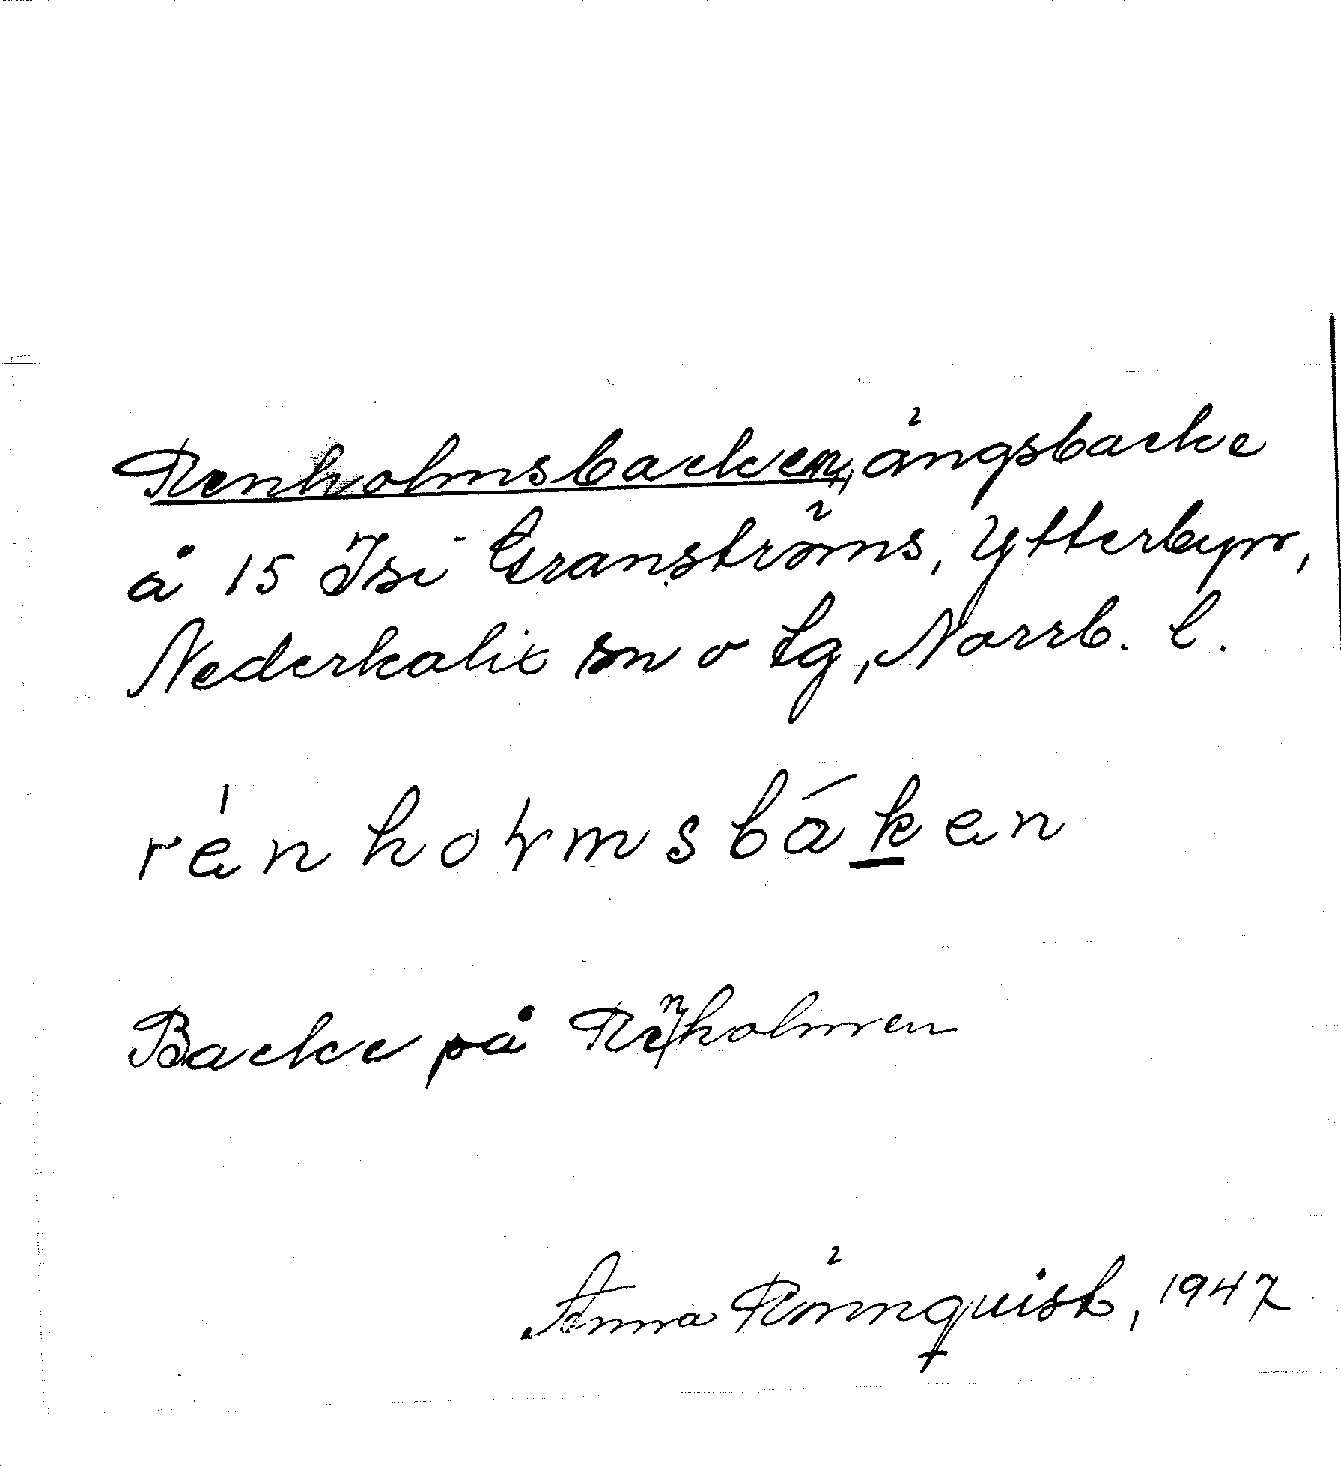 Renholmsbacken, ängsbacke
å 15 Isi Granströms, Ytterbyn,
Nederkalix sn o tg, Norrb. l.
rénholmsbáken
Backe på Renholmen
Anna Rönnquist, 1947